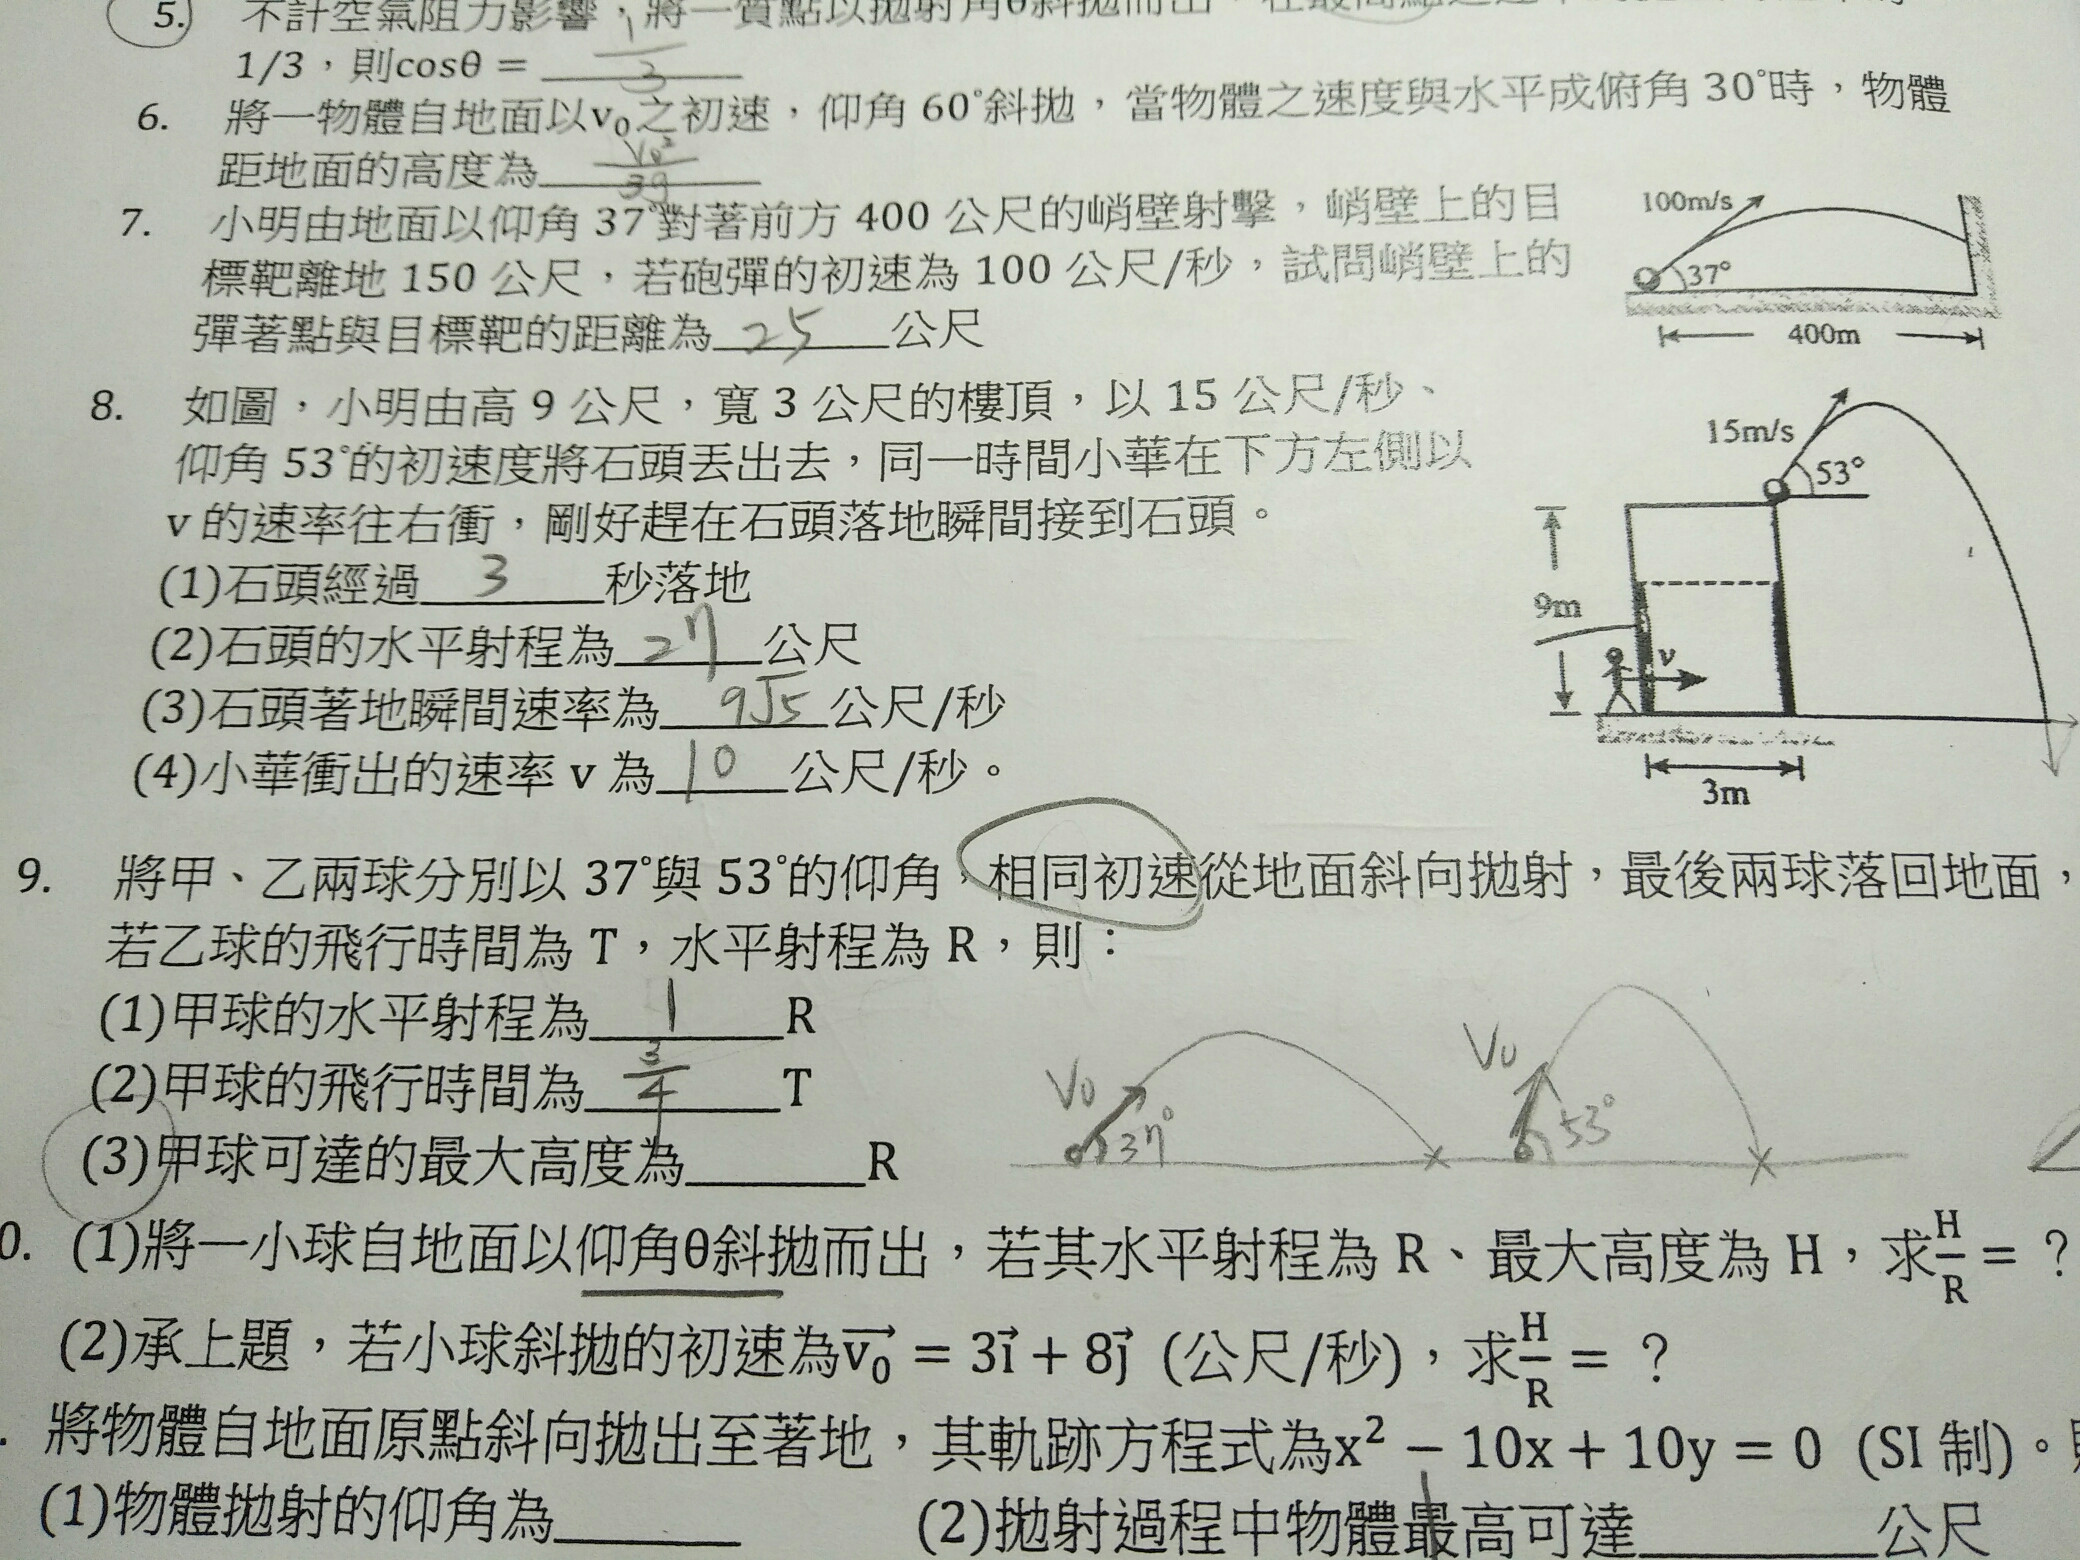 5. 不計空氣阻力影響,將一質點以拋射角θ斜拋而出,在最高點之速
1/3,則cosθ = 1/3
6. 將一物體自地面以v₀之初速,仰角 60°斜拋,當物體之速度與水平成俯角 30°時,物體
距地面的高度為 V₀²/3g
7. 小明由地面以仰角 37°對著前方 400 公尺的峭壁射擊,峭壁上的目
標靶離地 150 公尺,若砲彈的初速為 100 公尺/秒,試問峭壁上的
彈著點與目標靶的距離為 25 公尺
100m/s
37°
400m
8. 如圖,小明由高 9 公尺,寬 3 公尺的樓頂,以 15 公尺/秒、
仰角 53°的初速度將石頭丟出去,同一時間小華在下方左側以
v 的速率往右衝,剛好趕在石頭落地瞬間接到石頭。
(1)石頭經過 3 秒落地
(2)石頭的水平射程為 27 公尺
(3)石頭著地瞬間速率為 9√5 公尺/秒
(4)小華衝出的速率 v 為 10 公尺/秒。
15m/s
53°
9m
v
3m
9. 將甲、乙兩球分別以 37°與 53°的仰角,相同初速從地面斜向拋射,最後兩球落回地面,
若乙球的飛行時間為 T,水平射程為 R,則:
(1)甲球的水平射程為 1 R
(2)甲球的飛行時間為 3/4 T
(3)甲球可達的最大高度為______R
V₀ 37° V₀ 53°
0. (1)將一小球自地面以仰角θ斜拋而出,若其水平射程為 R、最大高度為 H,求H/R = ?
(2)承上題,若小球斜拋的初速為v₀⃗ = 3i⃗ + 8j⃗ (公尺/秒),求H/R = ?
. 將物體自地面原點斜向拋出至著地,其軌跡方程式為x² − 10x + 10y = 0 (SI 制)。
(1)物體拋射的仰角為______ (2)拋射過程中物體最高可達______公尺